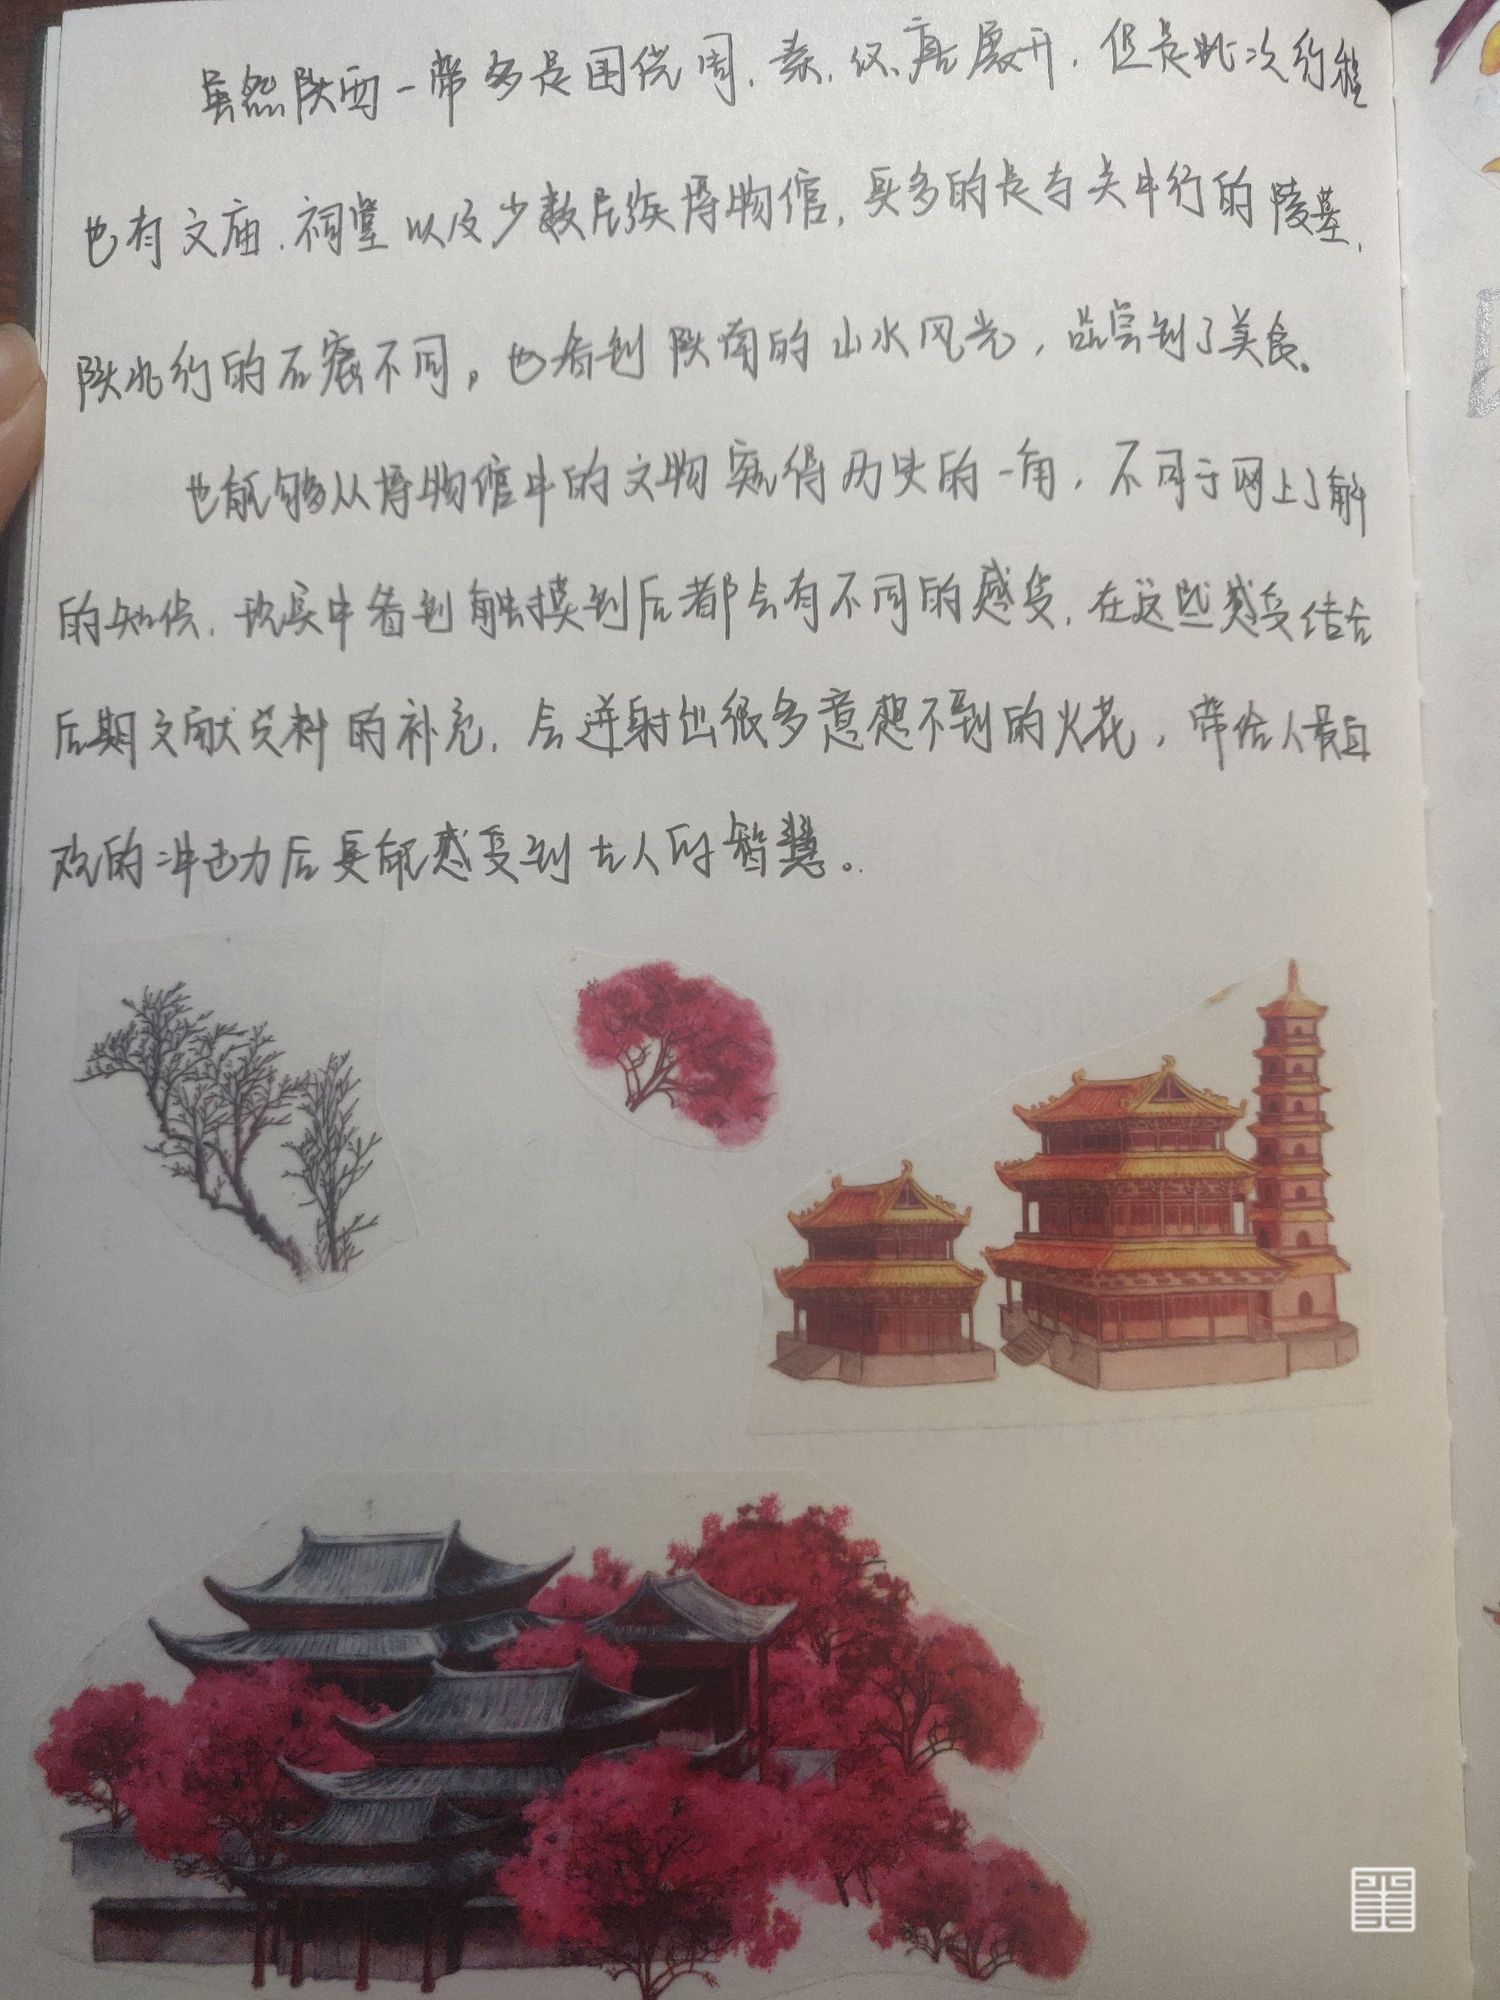 虽然陕西一带多是围绕周、秦、汉、唐展开，但是此次行程
也有文庙、祠堂以及少数民族博物馆，更多的是与关中行的陵墓、
陕北行的石窟不同。也看到陕南的山水风光，品尝到了美食。
也能够从博物馆中的文物窥得历史的一角，不同于网上了解
的知识，现实中看到触摸到后都会有不同的感受，在这些感受结合
后期文献资料的补充，会迸射出很多意想不到的火花，带给人最直
观的冲击力后更能感受到古人的智慧。